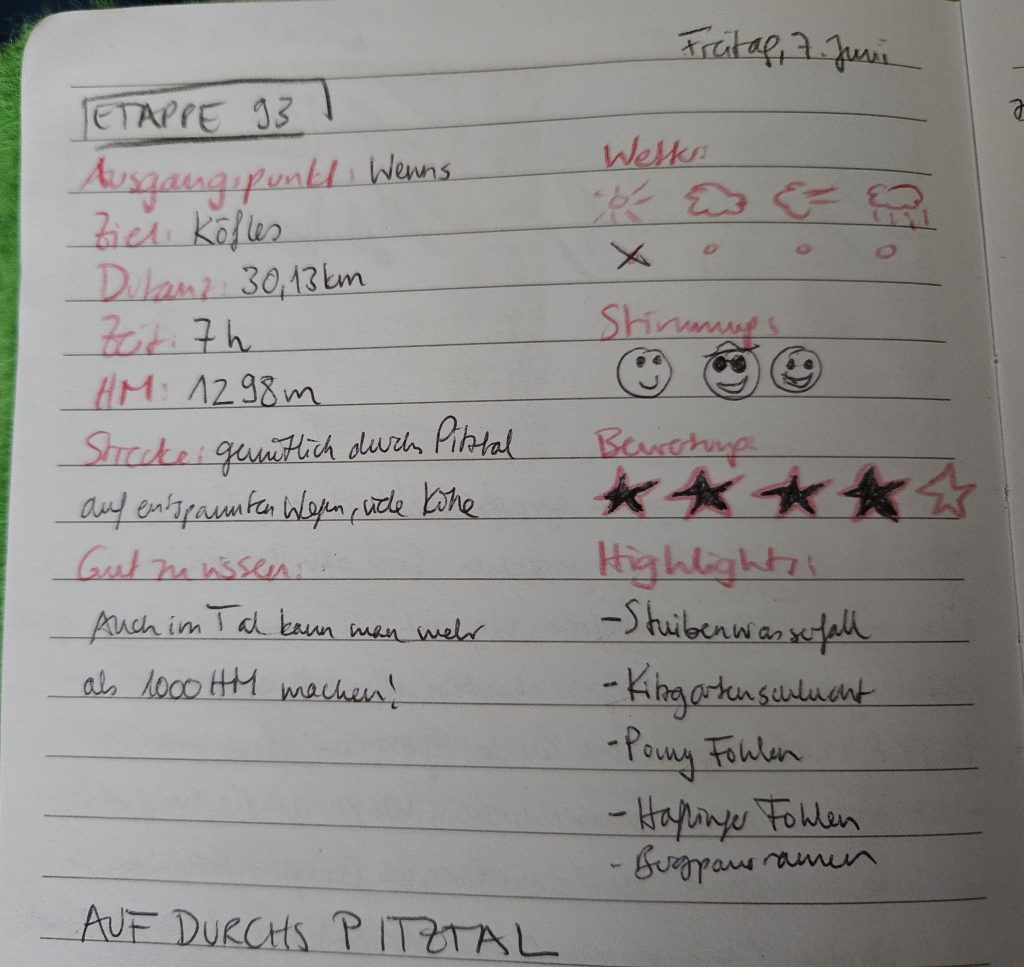 Freitag, 7. Juni
ETAPPE 93
Ausgangspunkt: Wenns
Ziel: Köfles
Distanz: 30,13km
Zeit: 7h
HM: 1298m
Strecke: gemütlich durch Pitztal
auf entspannten Wegen, viele Kühe
Gut zu wissen:
Auch im Tal kann man mehr
als 1000 HM machen!
Wetter:
Stimmung:
Bewertung:
Highlights:
- Stuibenwasserfall
- Kitzgartenschlucht
- Pony Fohlen
- Haflinger Fohlen
- Bergpanoramen
AUF DURCHS PITZTAL